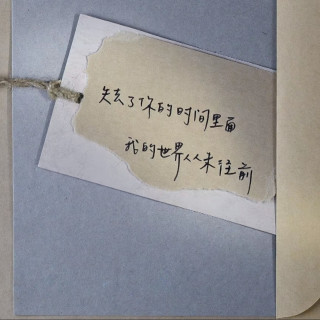 失去了你的时间里面
我的世界人未往前